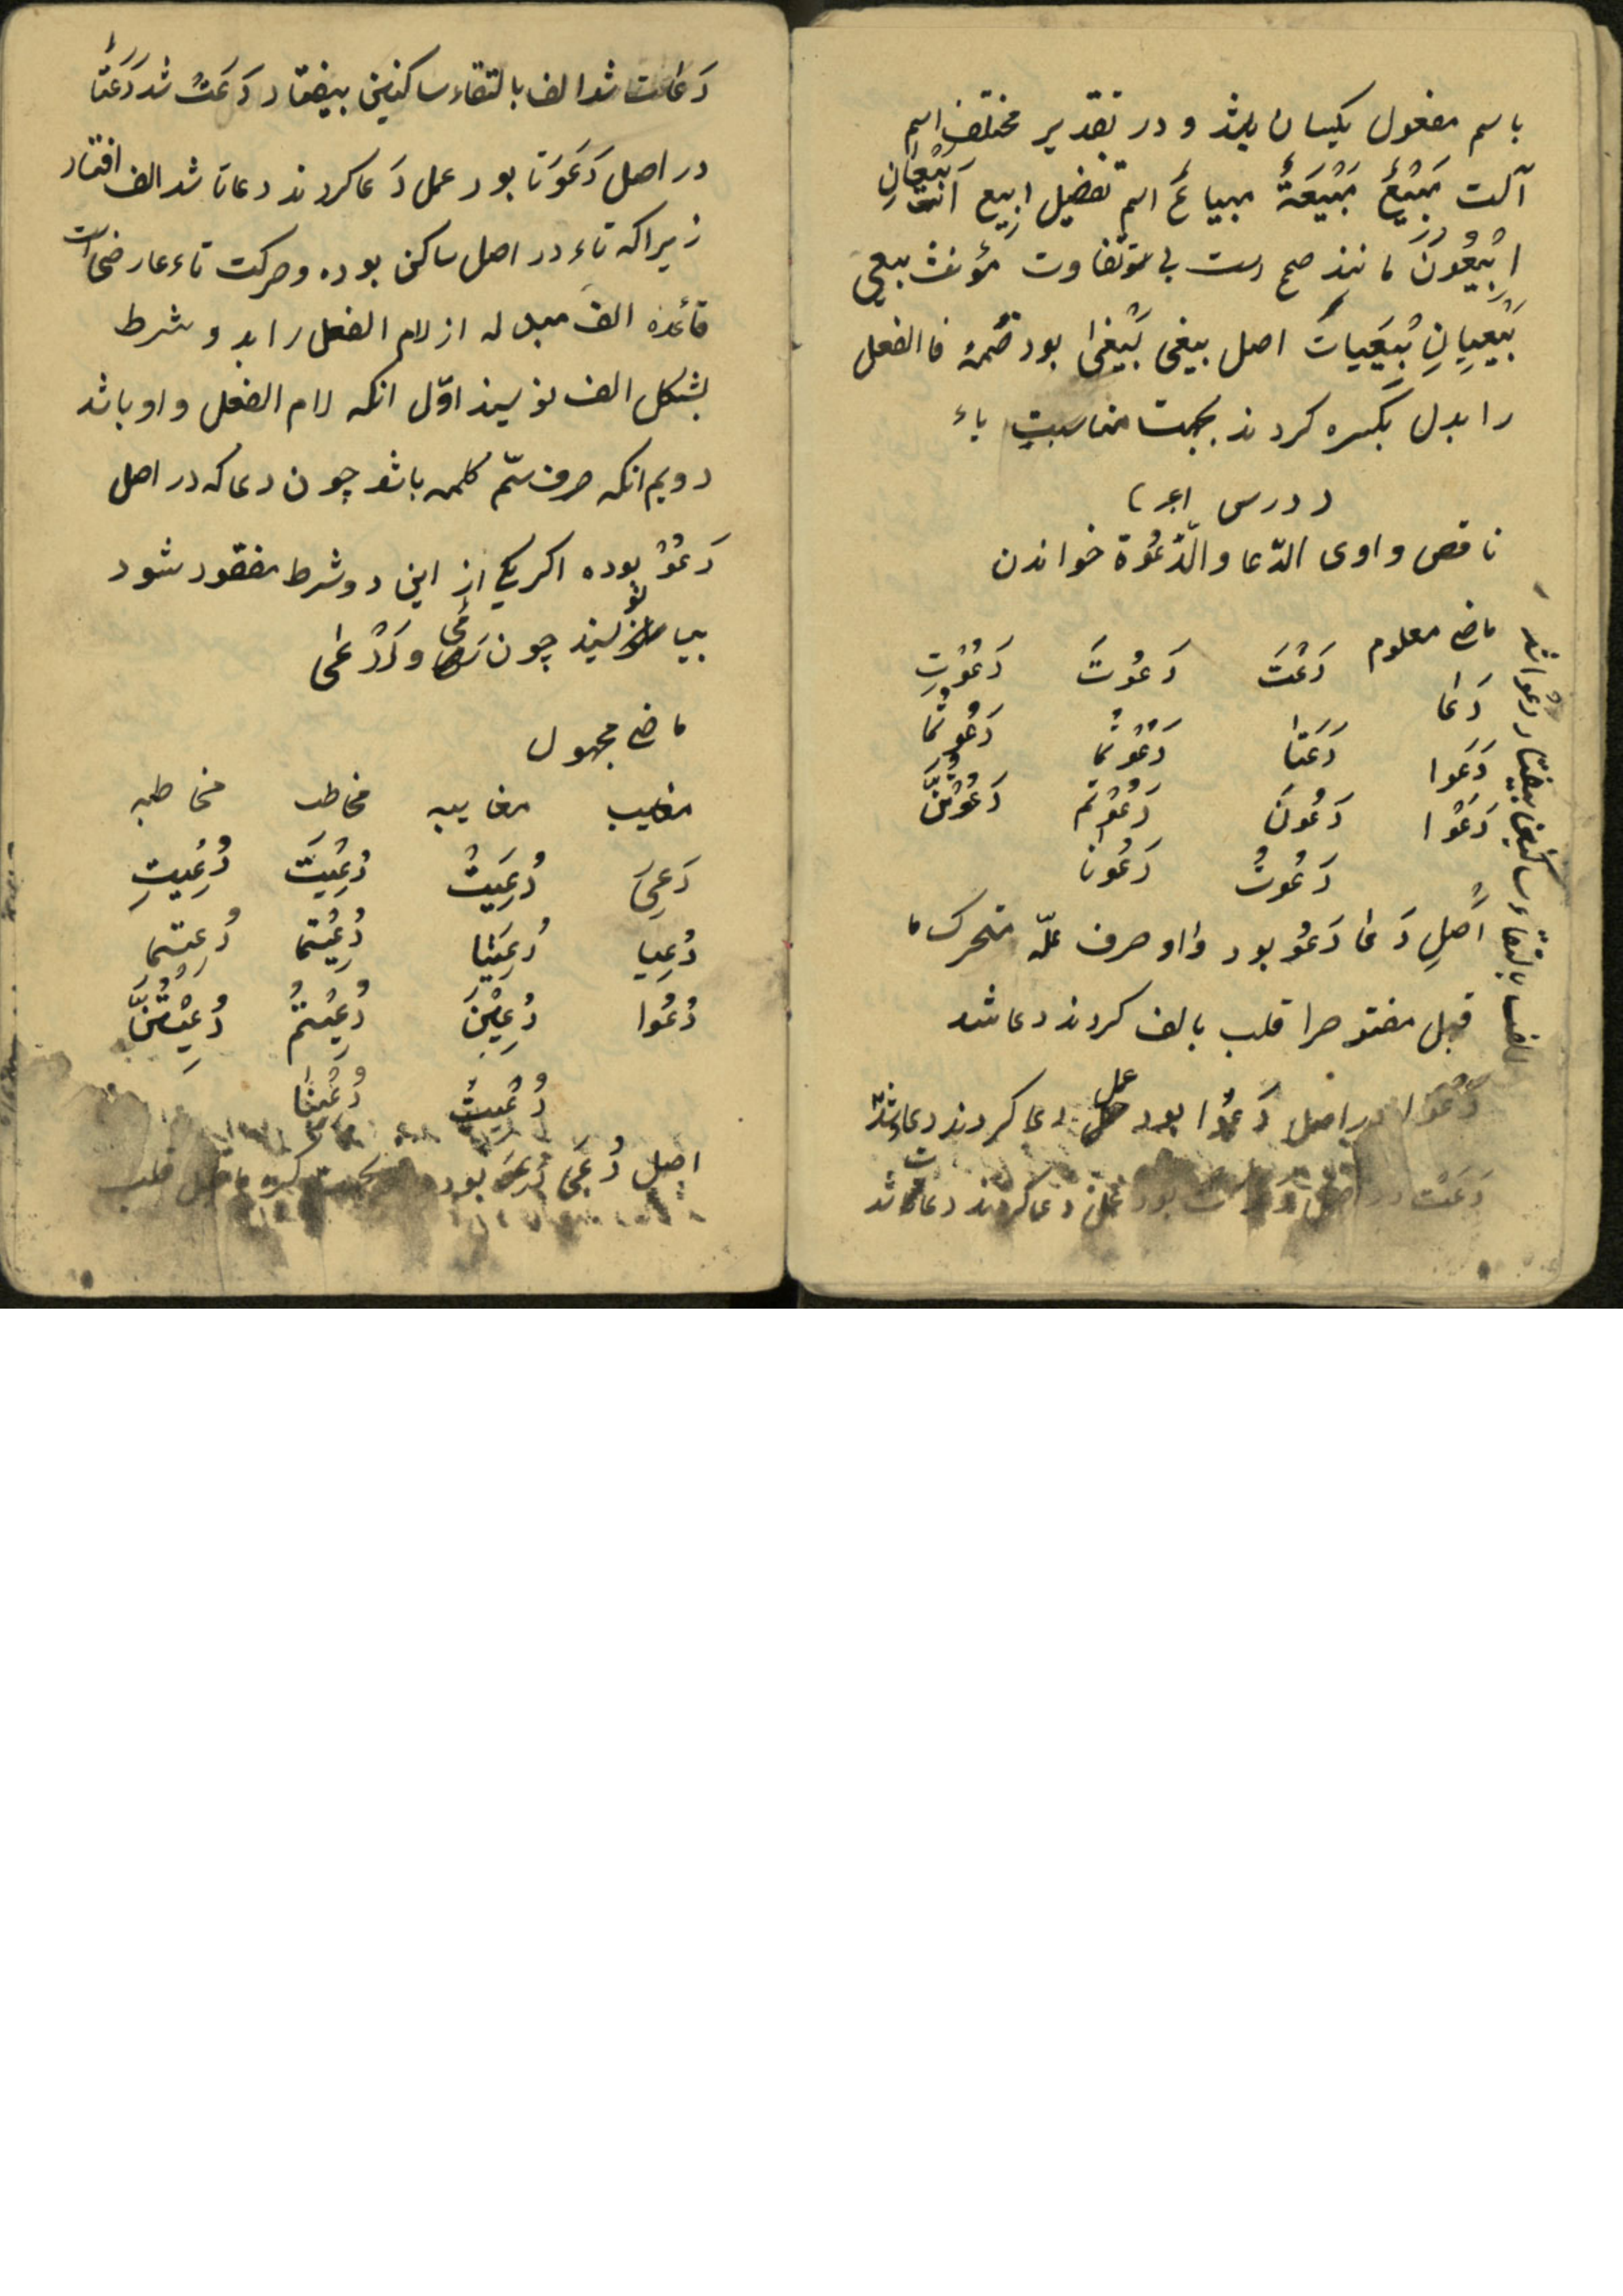 باسم مفعول یکسان بیند و در تقدیر مختلف اسم
آلت مَبْیَعٌ مَبْیَعَةٌ مبیاعٌ اسم تفضیل ابیع اَبْیَعانِ
اَبْیَعُونَ مانند صحیح است بی تفاوت مؤنث بیعی
بُیْعَیانِ بُیْعَیات اصل بیعی بُیْعیٰ بود ضمهٔ فاالفعل
را بدل بکسره کردند بجهت مناسبت یاء
درس
ناقص واوی الدّعا والدّعْوة خواندن
ماضی معلوم
دَعَتْ دَعَوْتَ دَعَوْتِ
دَعَا
دَعَتَا دَعَوْتُما دَعَوْتُما
دَعَوا
دَعَوْا دَعَوْنَ دَعَوْتُم دَعَوْتُنَّ
دَعَوْتُ دَعَوْنا
اصلِ دَعٰی دَعَوَ بود واو حرف علّه متحرک ما
قبل مفتوح را قلب بالف کردند دعا شد
دَعَوْا در اصل دَعَوُوا بود عمل دعا کردند دعاو شد
الف بالتقاء ساکنین بیفتاد دعوا شد
دَعَتْ در اصل بود عمل دعا کردند دعات شد
دَعات شد الف بالتقاء ساکنین بیفتاد دَعَتْ شد دَعَتَا
در اصل دَعَوَتا بود عمل دَعا کردند دعاتا شد الف افتاد
زیرا که تاء در اصل ساکن بوده و حرکت تاء عارضی است
قائده الف مبدله از لام الفعل را بدو شرط
بشکل الف نویسند اوّل انکه لام الفعل واو باشد
دویم انکه حرف سیّم کلمه باشد چون دعا که در اصل
دَعَوَ بوده اکر یکی از این دو شرط مفقود شود
بیا نویسند چون رَمیٰ و اَدْعیٰ
ماضی مجهول
مغایب مغایبه مخاطب مخاطبه
دُعِیَ دُعِیَتْ دُعِیتَ دُعِیتِ
دُعِیا دُعِیَتا دُعِیتُما دُعِیتُما
دُعُوا دُعِیْنَ دُعِیتُمْ دُعِیْتُنَّ
دُعِیتُ دُعِینا
اصل دُعِیَ دُعِوَ بود بجهت کسره ماقبل قلب